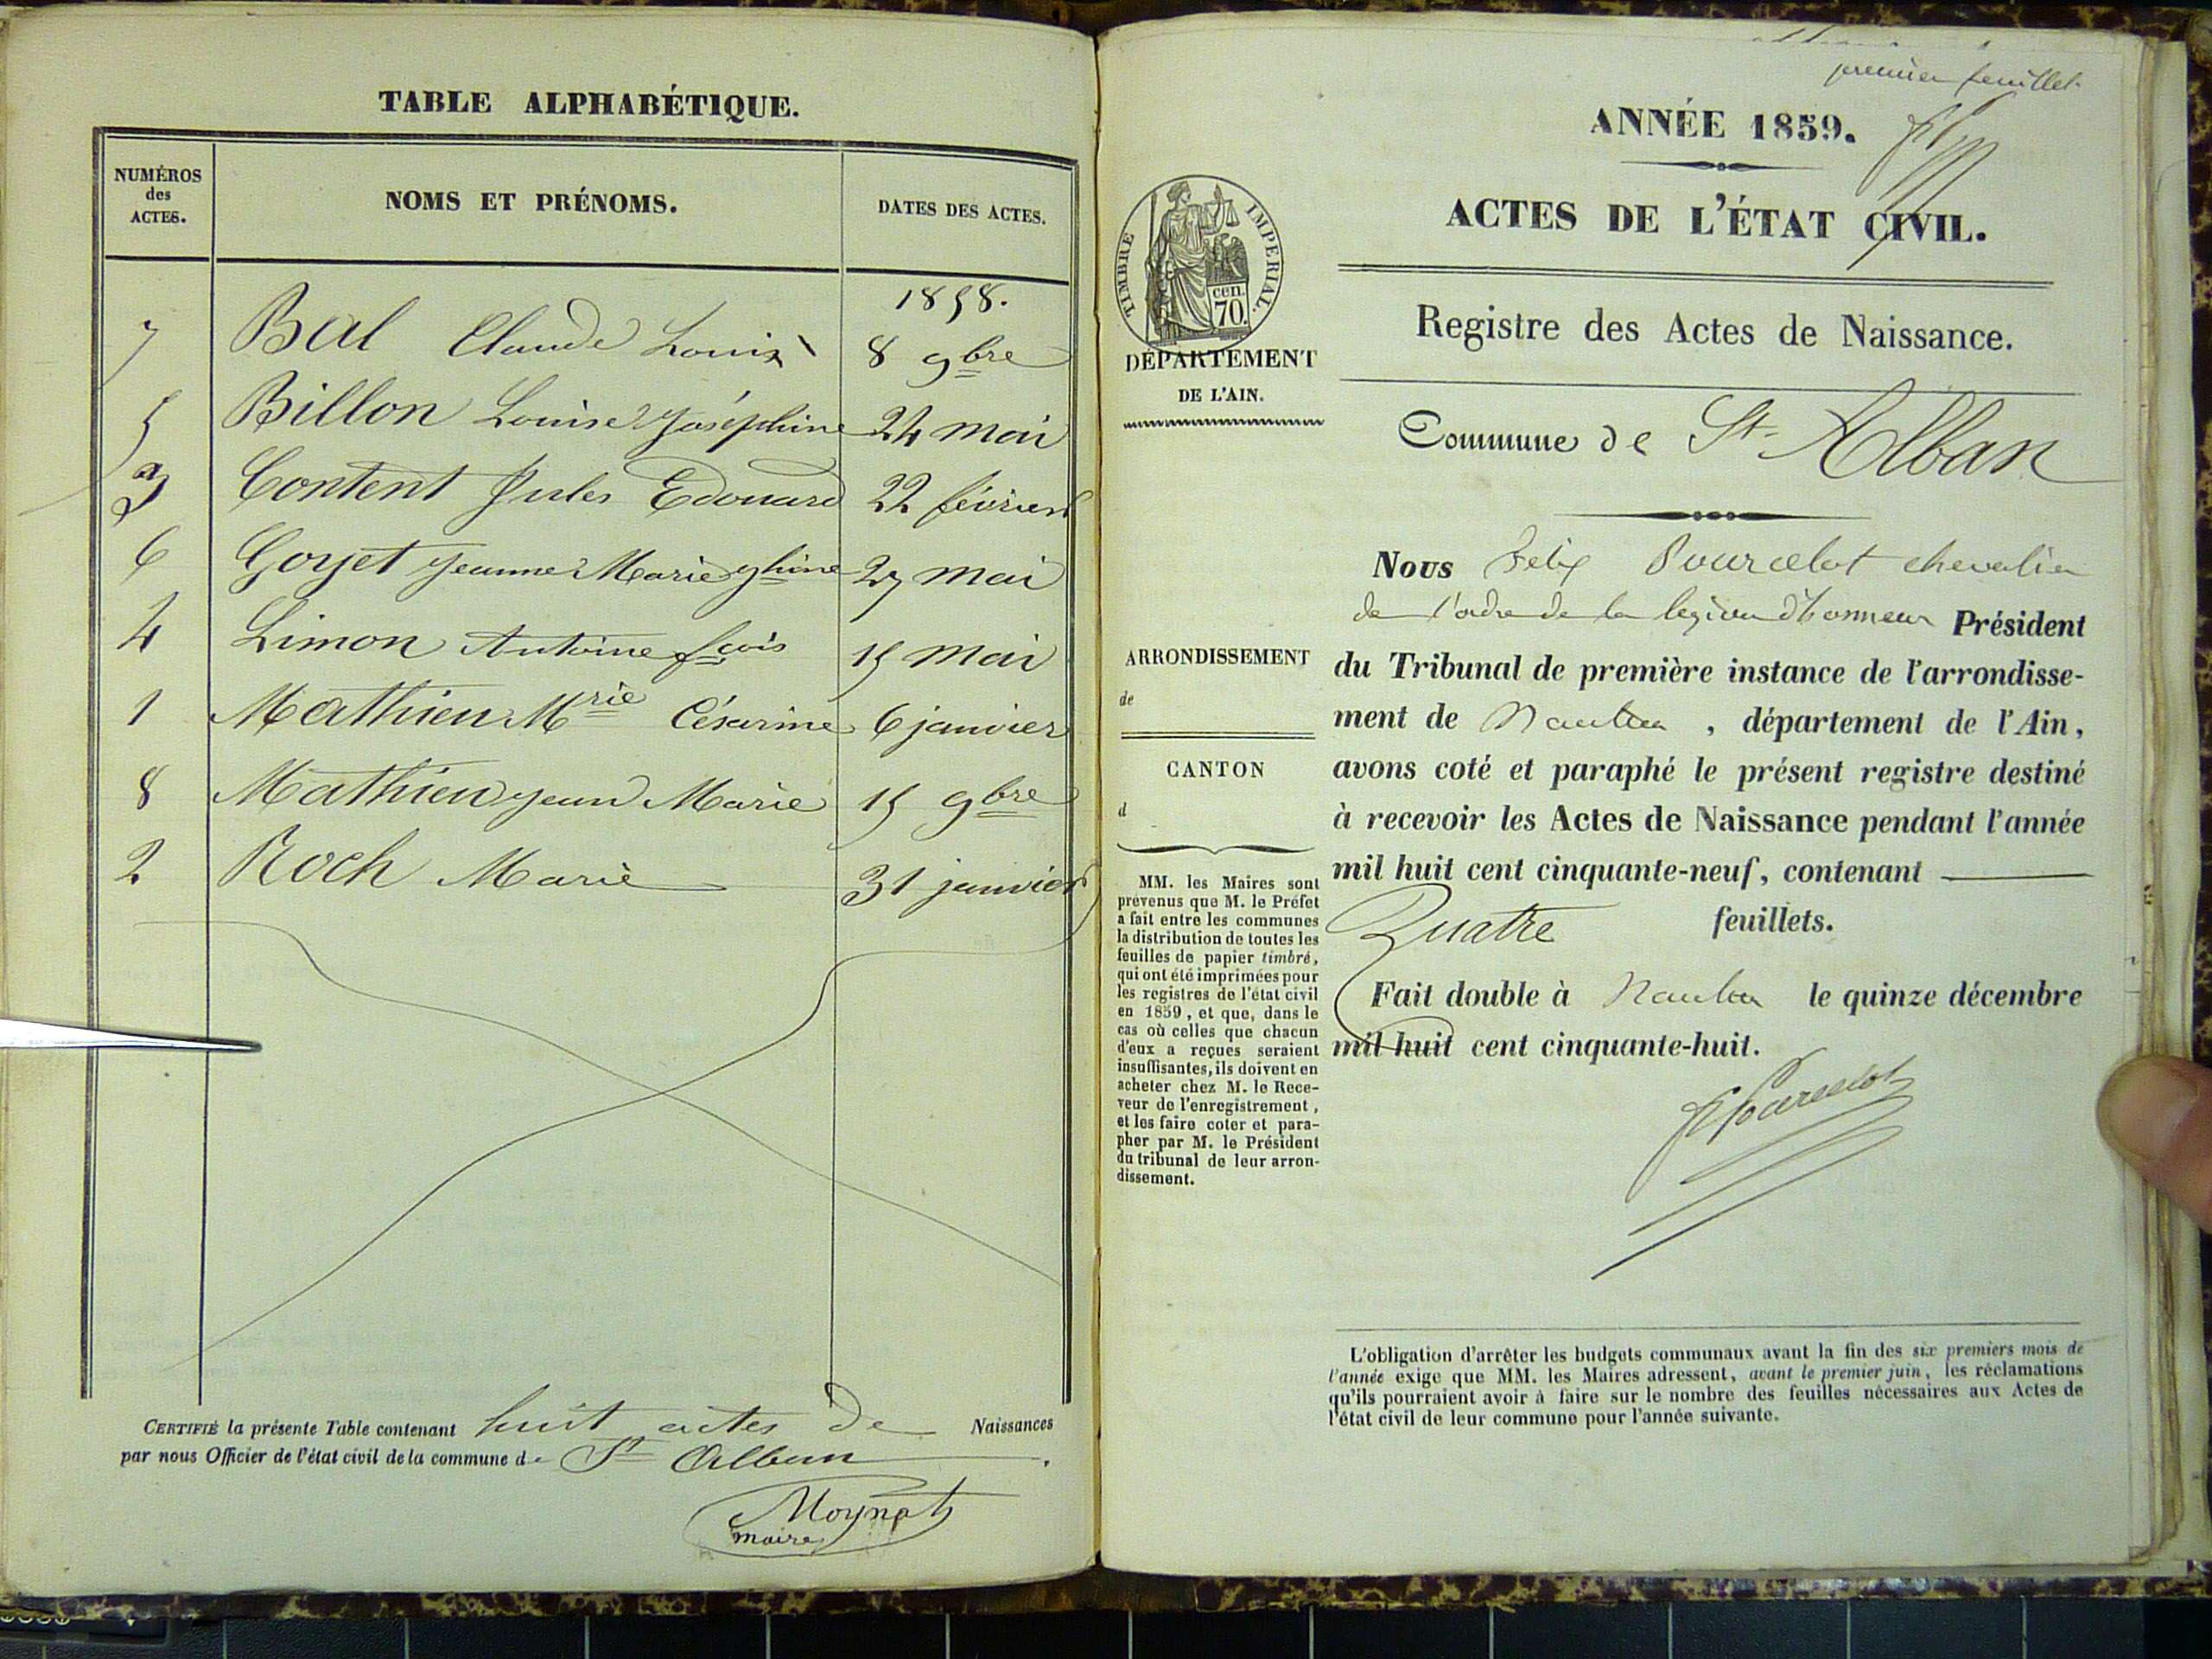 TABLE ALPHABÉTIQUE.
NUMÉROS
des
ACTES.
NOMS ET PRÉNOMS.
DATES DES ACTES.
1858.
7 Bal Claude Louis 8 9bre
5 Billon Louise Joséphine 24 mai
3 Content Jules Edouard 22 février
6 Goyet Jeanne Marie phine 27 mai
4 Limon Antoine fçois 15 mai
1 Mathieu Mrie Césarine 6 janvier
8 Mathieu Jean Marie 15 9bre
2 Roch Marie 31 janvier
CERTIFIÉ la présente Table contenant huit actes de Naissances
par nous Officier de l'état civil de la commune de St Alban.
Moynat
maire
premier feuillet.
ANNÉE 1859.
ACTES DE L'ÉTAT CIVIL.
TIMBRE IMPERIAL.
cen.
70.
DÉPARTEMENT
DE L'AIN.
Registre des Actes de Naissance.
Commune de St Alban
Nous Felix Pourcelot chevalier
de l'ordre de la legion d'honneur Président
du Tribunal de première instance de l'arrondisse-
ment de Nantua, département de l'Ain,
avons coté et paraphé le présent registre destiné
à recevoir les Actes de Naissance pendant l'année
mil huit cent cinquante-neuf, contenant
Quatre feuillets.
Fait double à Nantua le quinze décembre
mil huit cent cinquante-huit.
F Pourcelot
ARRONDISSEMENT
de
CANTON
d
MM. les Maires sont
prévenus que M. le Préfet
a fait entre les communes
la distribution de toutes les
feuilles de papier timbré,
qui ont été imprimées pour
les registres de l'état civil
en 1859, et que, dans le
cas où celles que chacun
d'eux a reçues seraient
insuffisantes, ils doivent en
acheter chez M. le Rece-
veur de l'enregistrement,
et les faire coter et para-
pher par M. le Président
du tribunal de leur arron-
dissement.
L'obligation d'arrêter les budgets communaux avant la fin des six premiers mois de
l'année exige que MM. les Maires adressent, avant le premier juin, les réclamations
qu'ils pourraient avoir à faire sur le nombre des feuilles nécessaires aux Actes de
l'état civil de leur commune pour l'année suivante.